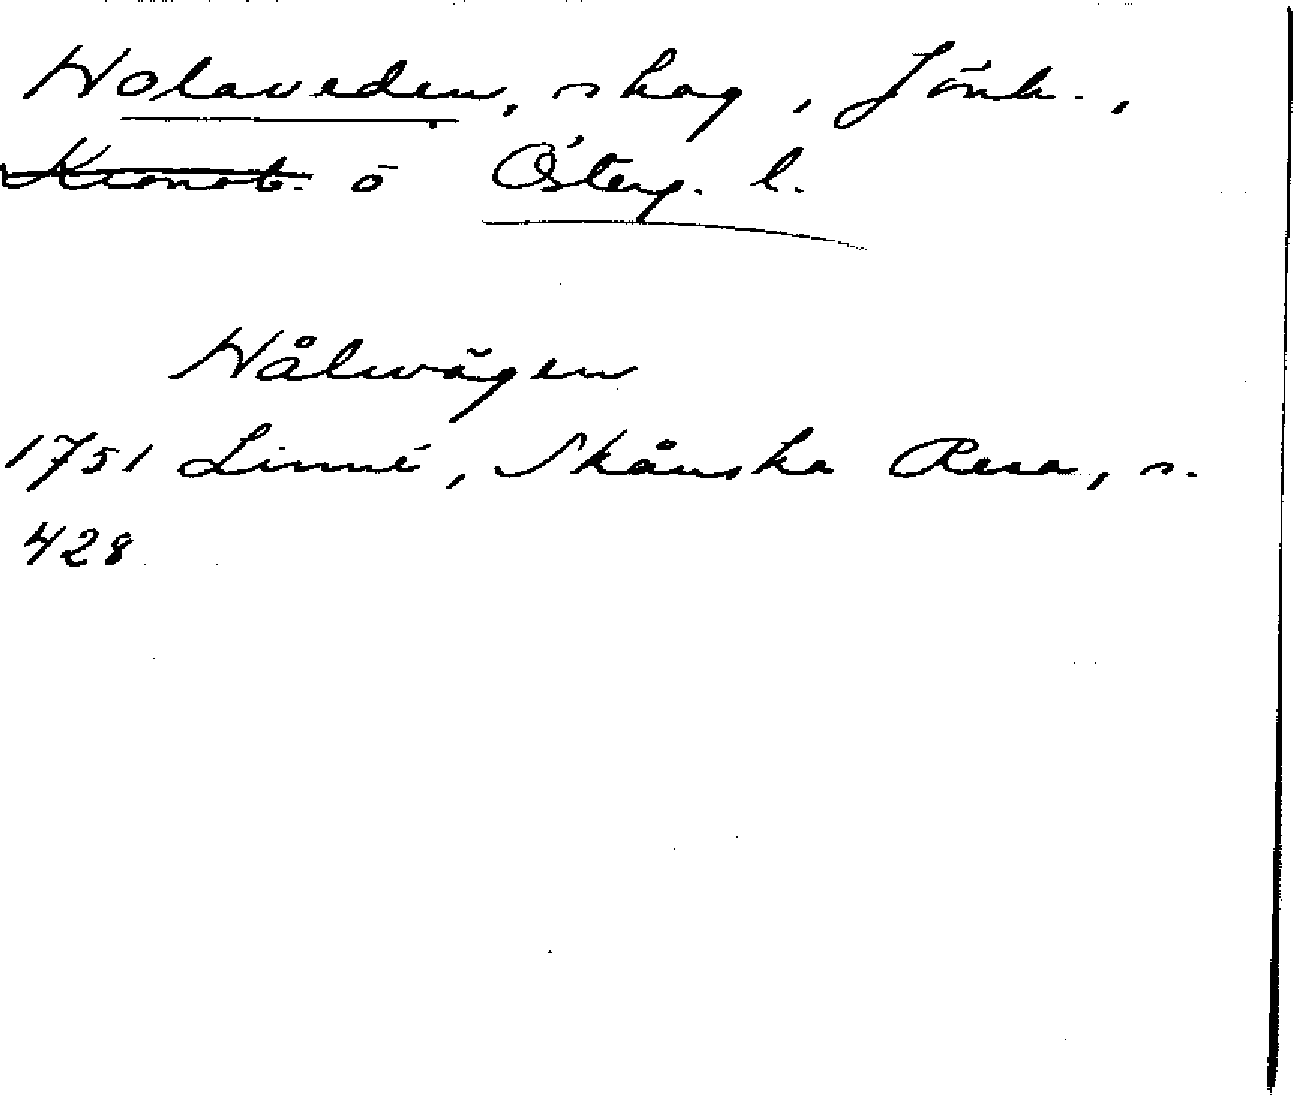 Holaveden, skog, Jönk.,
Kronob. o Österg. l.
Hålwägen
1751 Linné, Skånska Resa, s.
428